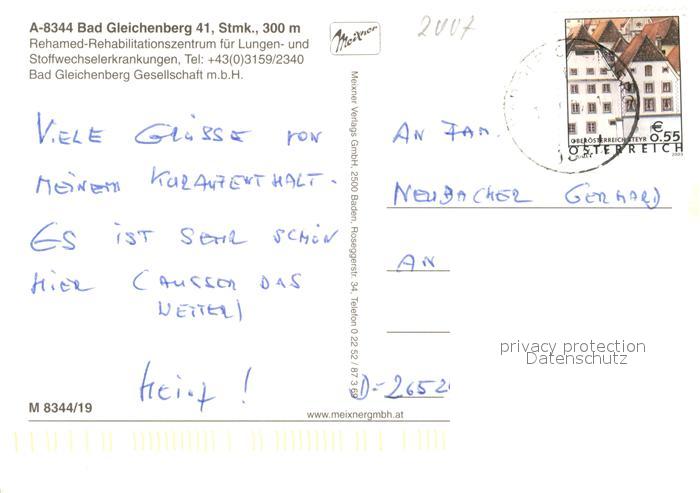 A-8344 Bad Gleichenberg 41, Stmk., 300 m
Rehamed-Rehabilitationszentrum für Lungen- und
Stoffwechselerkrankungen, Tel: +43(0)3159/2340
Bad Gleichenberg Gesellschaft m.b.H.
Meixner
2007
OBERÖSTERREICH STEYR
€ 0.55
ÖSTERREICH
VIELE GRÜSSE VON
MEINEM KURAUFENTHALT.
ES IST SEHR SCHÖN
HIER (AUSSER DAS
WETTER)
HEINZ!
Meixner Verlags GmbH, 2500 Baden, Roseggerstr. 34, Telefon 0 22 52 / 87 3 69
AN FAM.
NEUBACHER GERHARD
AN
privacy protection
Datenschutz
D-2652
M 8344/19
www.meixnergmbh.at